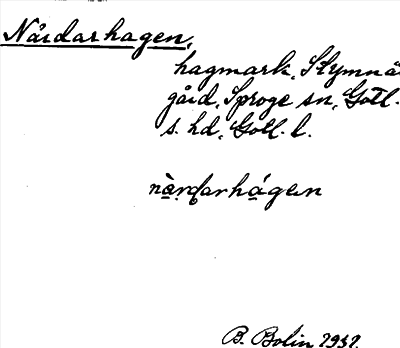 Nårdarhagen,
hagmark, Stymnä
gård, Sproge sn, Gotl.
s. hd, Gotl. l.
nàrdarhágen
B. Bolin 1937.